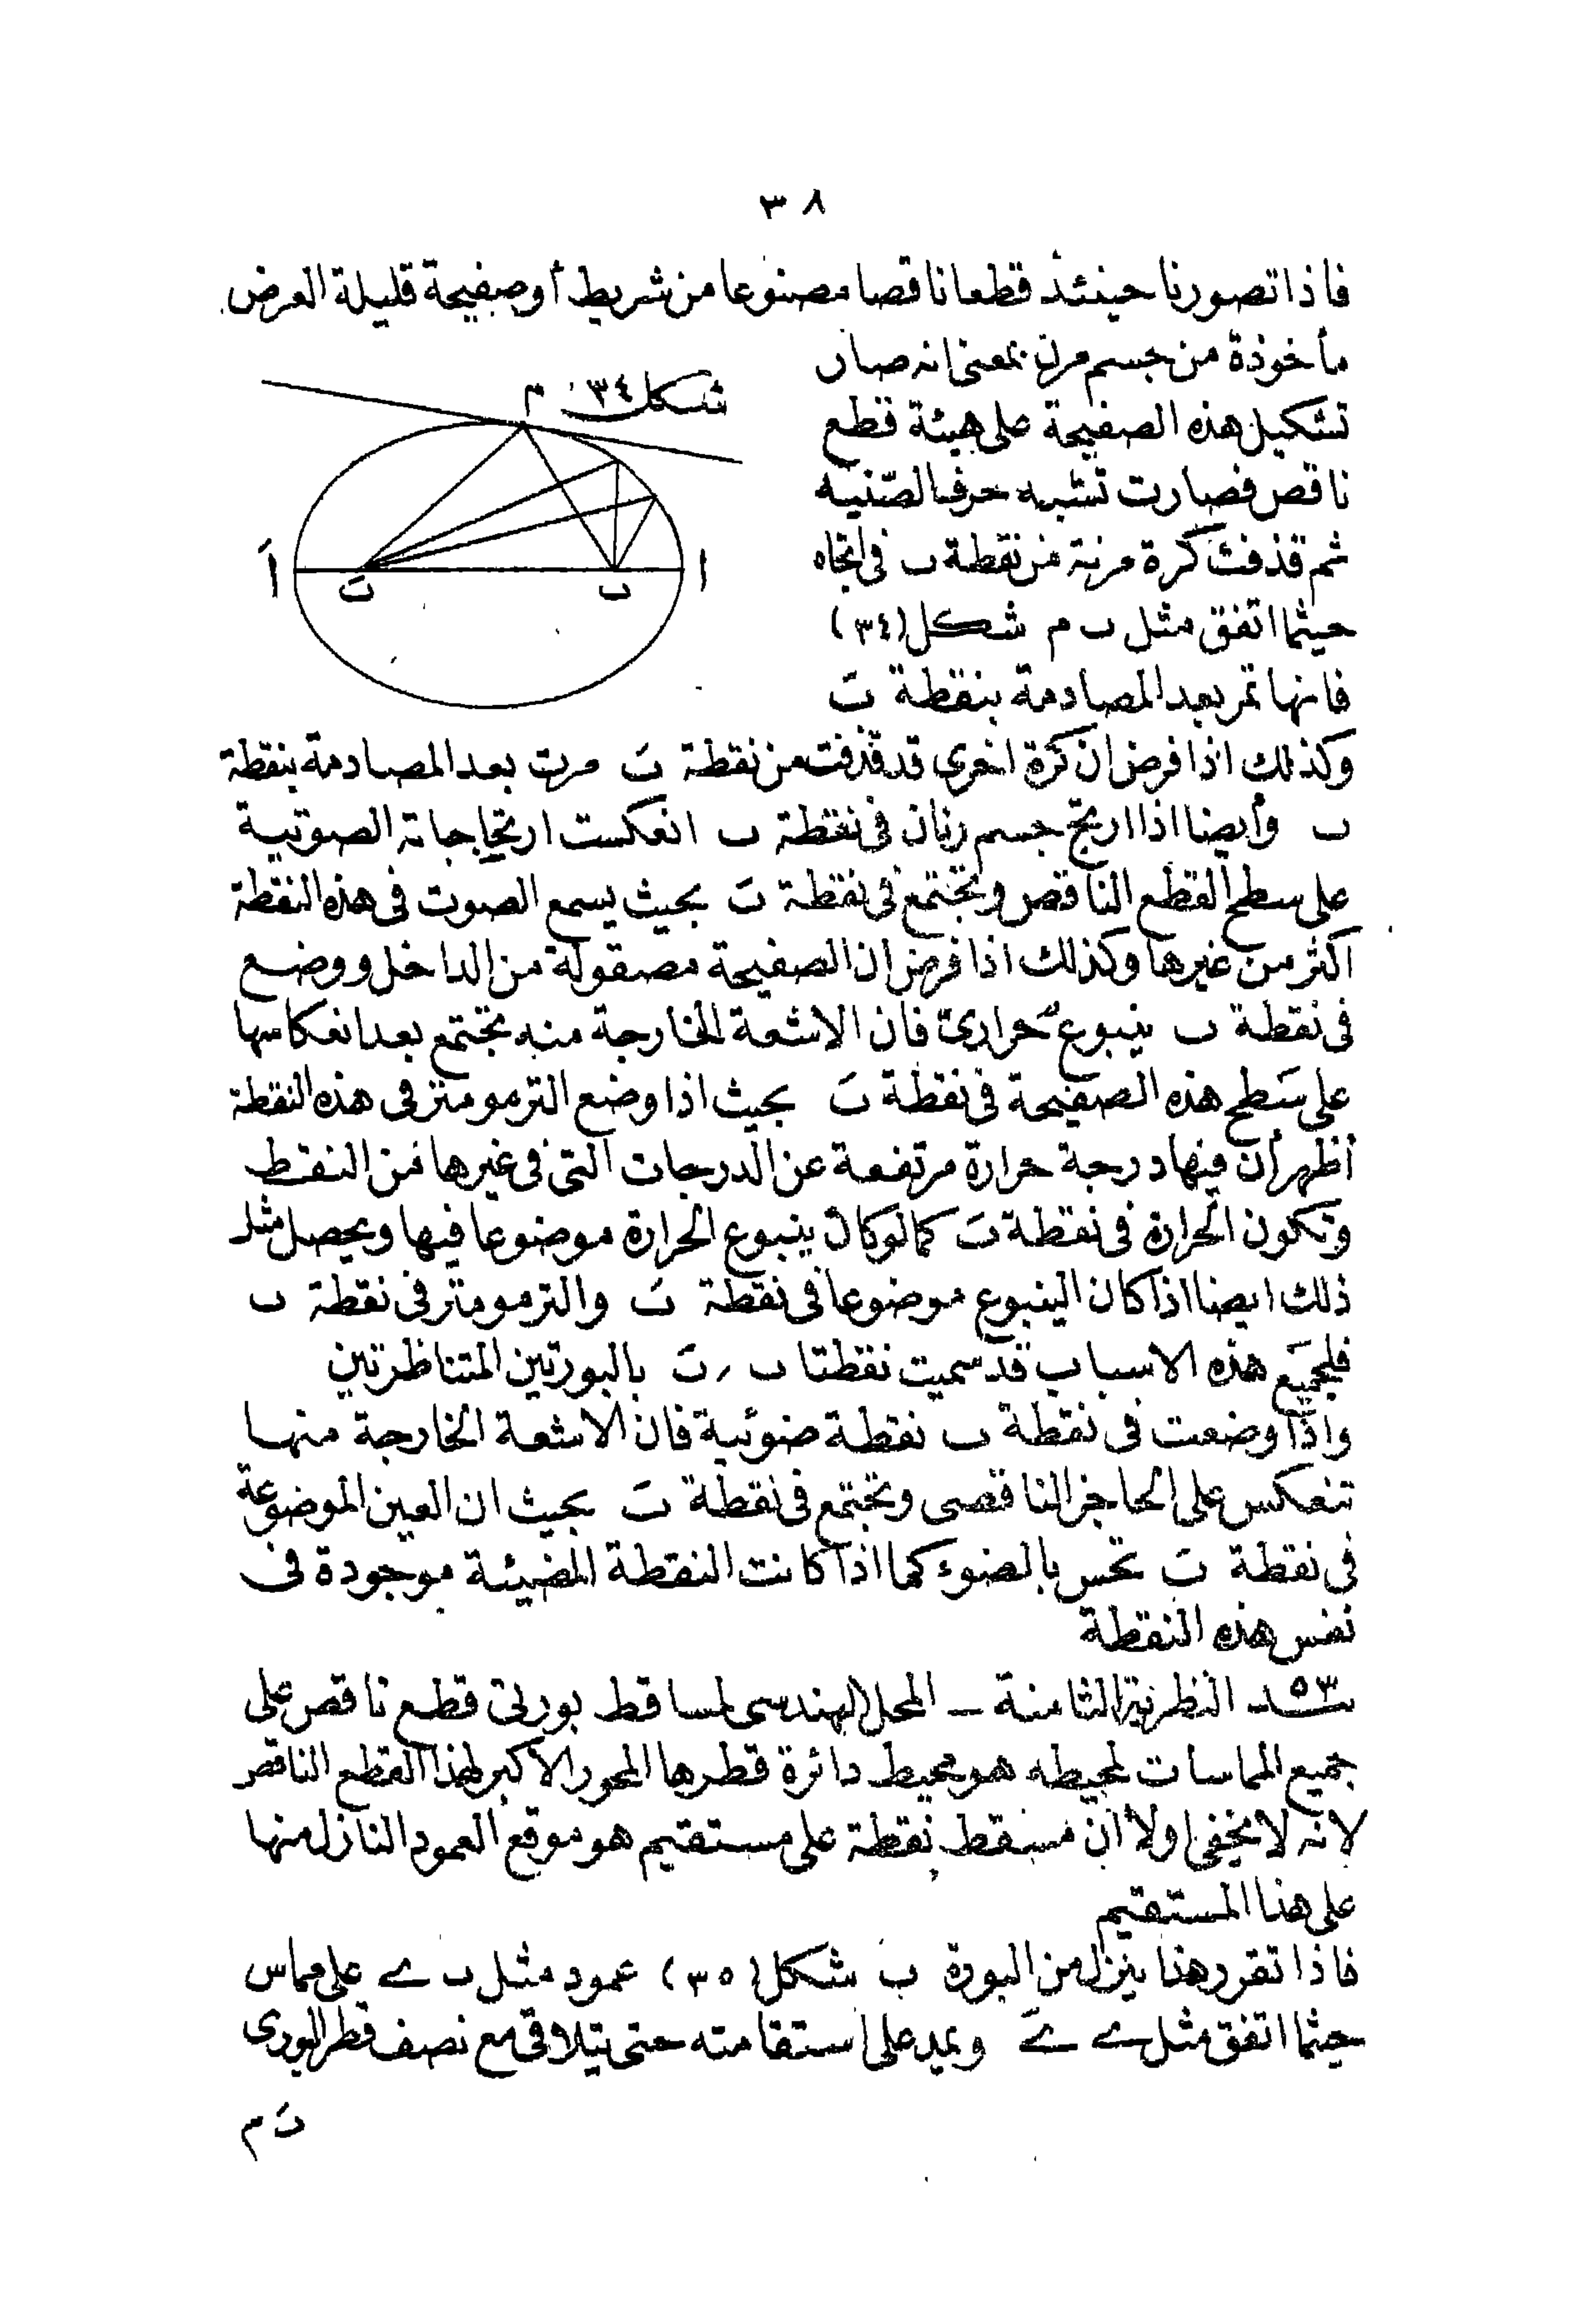 ٣٨
فاذا تصورنا حينئذ قطعا ناقصا مصنوعا من شريط أو صفيحة قليلة العرض
مأخوذة من جسم مرن بمعنى انه صار
تشكيل هذه الصفيحة على هيئة قطع
ناقص فصارت تشبه حرف الصّنية
ثم قذفت كرة مرنة من نقطة ب فى اتجاه
حيثما اتفق مثل ب م شكل (٣٤)
فانها تمر بعد المصادمة بنقطة بَ
شكل ٣٤ م
اَ بَ ب ا
وكذلك اذا فرض ان كرة اخرى قد قذفت من نقطة بَ مرت بعد المصادمة بنقطة
ب وأيضا اذا ارتج جسم رنان فى نقطة ب انعكست ارتجاجاته الصوتية
على سطح القطع الناقص وتجتمع فى نقطة بَ بحيث يسمع الصوت فى هذه النقطة
اكثر من غيرها وكذلك اذا فرض ان الصفيحة مصقولة من الداخل ووضع
فى نقطة ب ينبوع حرارىّ فان الاشعة الخارجة منه تجتمع بعد انعكاسها
على سطح هذه الصفيحة فى نقطة بَ بحيث اذا وضع الترمومتر فى هذه النقطة
أظهر أن فيها درجة حرارة مرتفعة عن الدرجات التى فى غيرها من النقط
وتكون الحرارة فى نقطة بَ كما لو كان ينبوع الحرارة موضوعا فيها ويحصل مثل
ذلك ايضا اذا كان الينبوع موضوعا فى نقطة بَ والترمومتر فى نقطة ب
فلجميع هذه الاسباب قد سميت نقطتا ب ر بَ بالبورتين المتناظرتين
واذا وضعت فى نقطة ب نقطة ضوئية فان الاشعة الخارجة منها
تنعكس على الحاجز الناقصى وتجتمع فى نقطة بَ بحيث ان العين الموضوعة
فى نقطة بَ تحس بالضوء كما اذا كانت النقطة المضيئة موجودة فى
نفس هذه النقطة
٥٣ النظرية الثامنة ـ المحل الهندسى لمساقط بورتى قطع ناقص على
جميع المماسات لمحيطه هو محيط دائرة قطرها المحور الأكبر لهذا القطع الناقص
لانه لا يخفى اولا أن مسقط نقطة على مستقيم هو موقع العمود النازل منها
على هذا المستقيم
فاذا تقرر هذا ينزل من البورة ب شكل (٣٥) عمود مثل ب ے على مماس
حيثما اتفق مثل ے ےَ ويمد على استقامته حتى يتلاقى مع نصف قطر البورى
بَ م